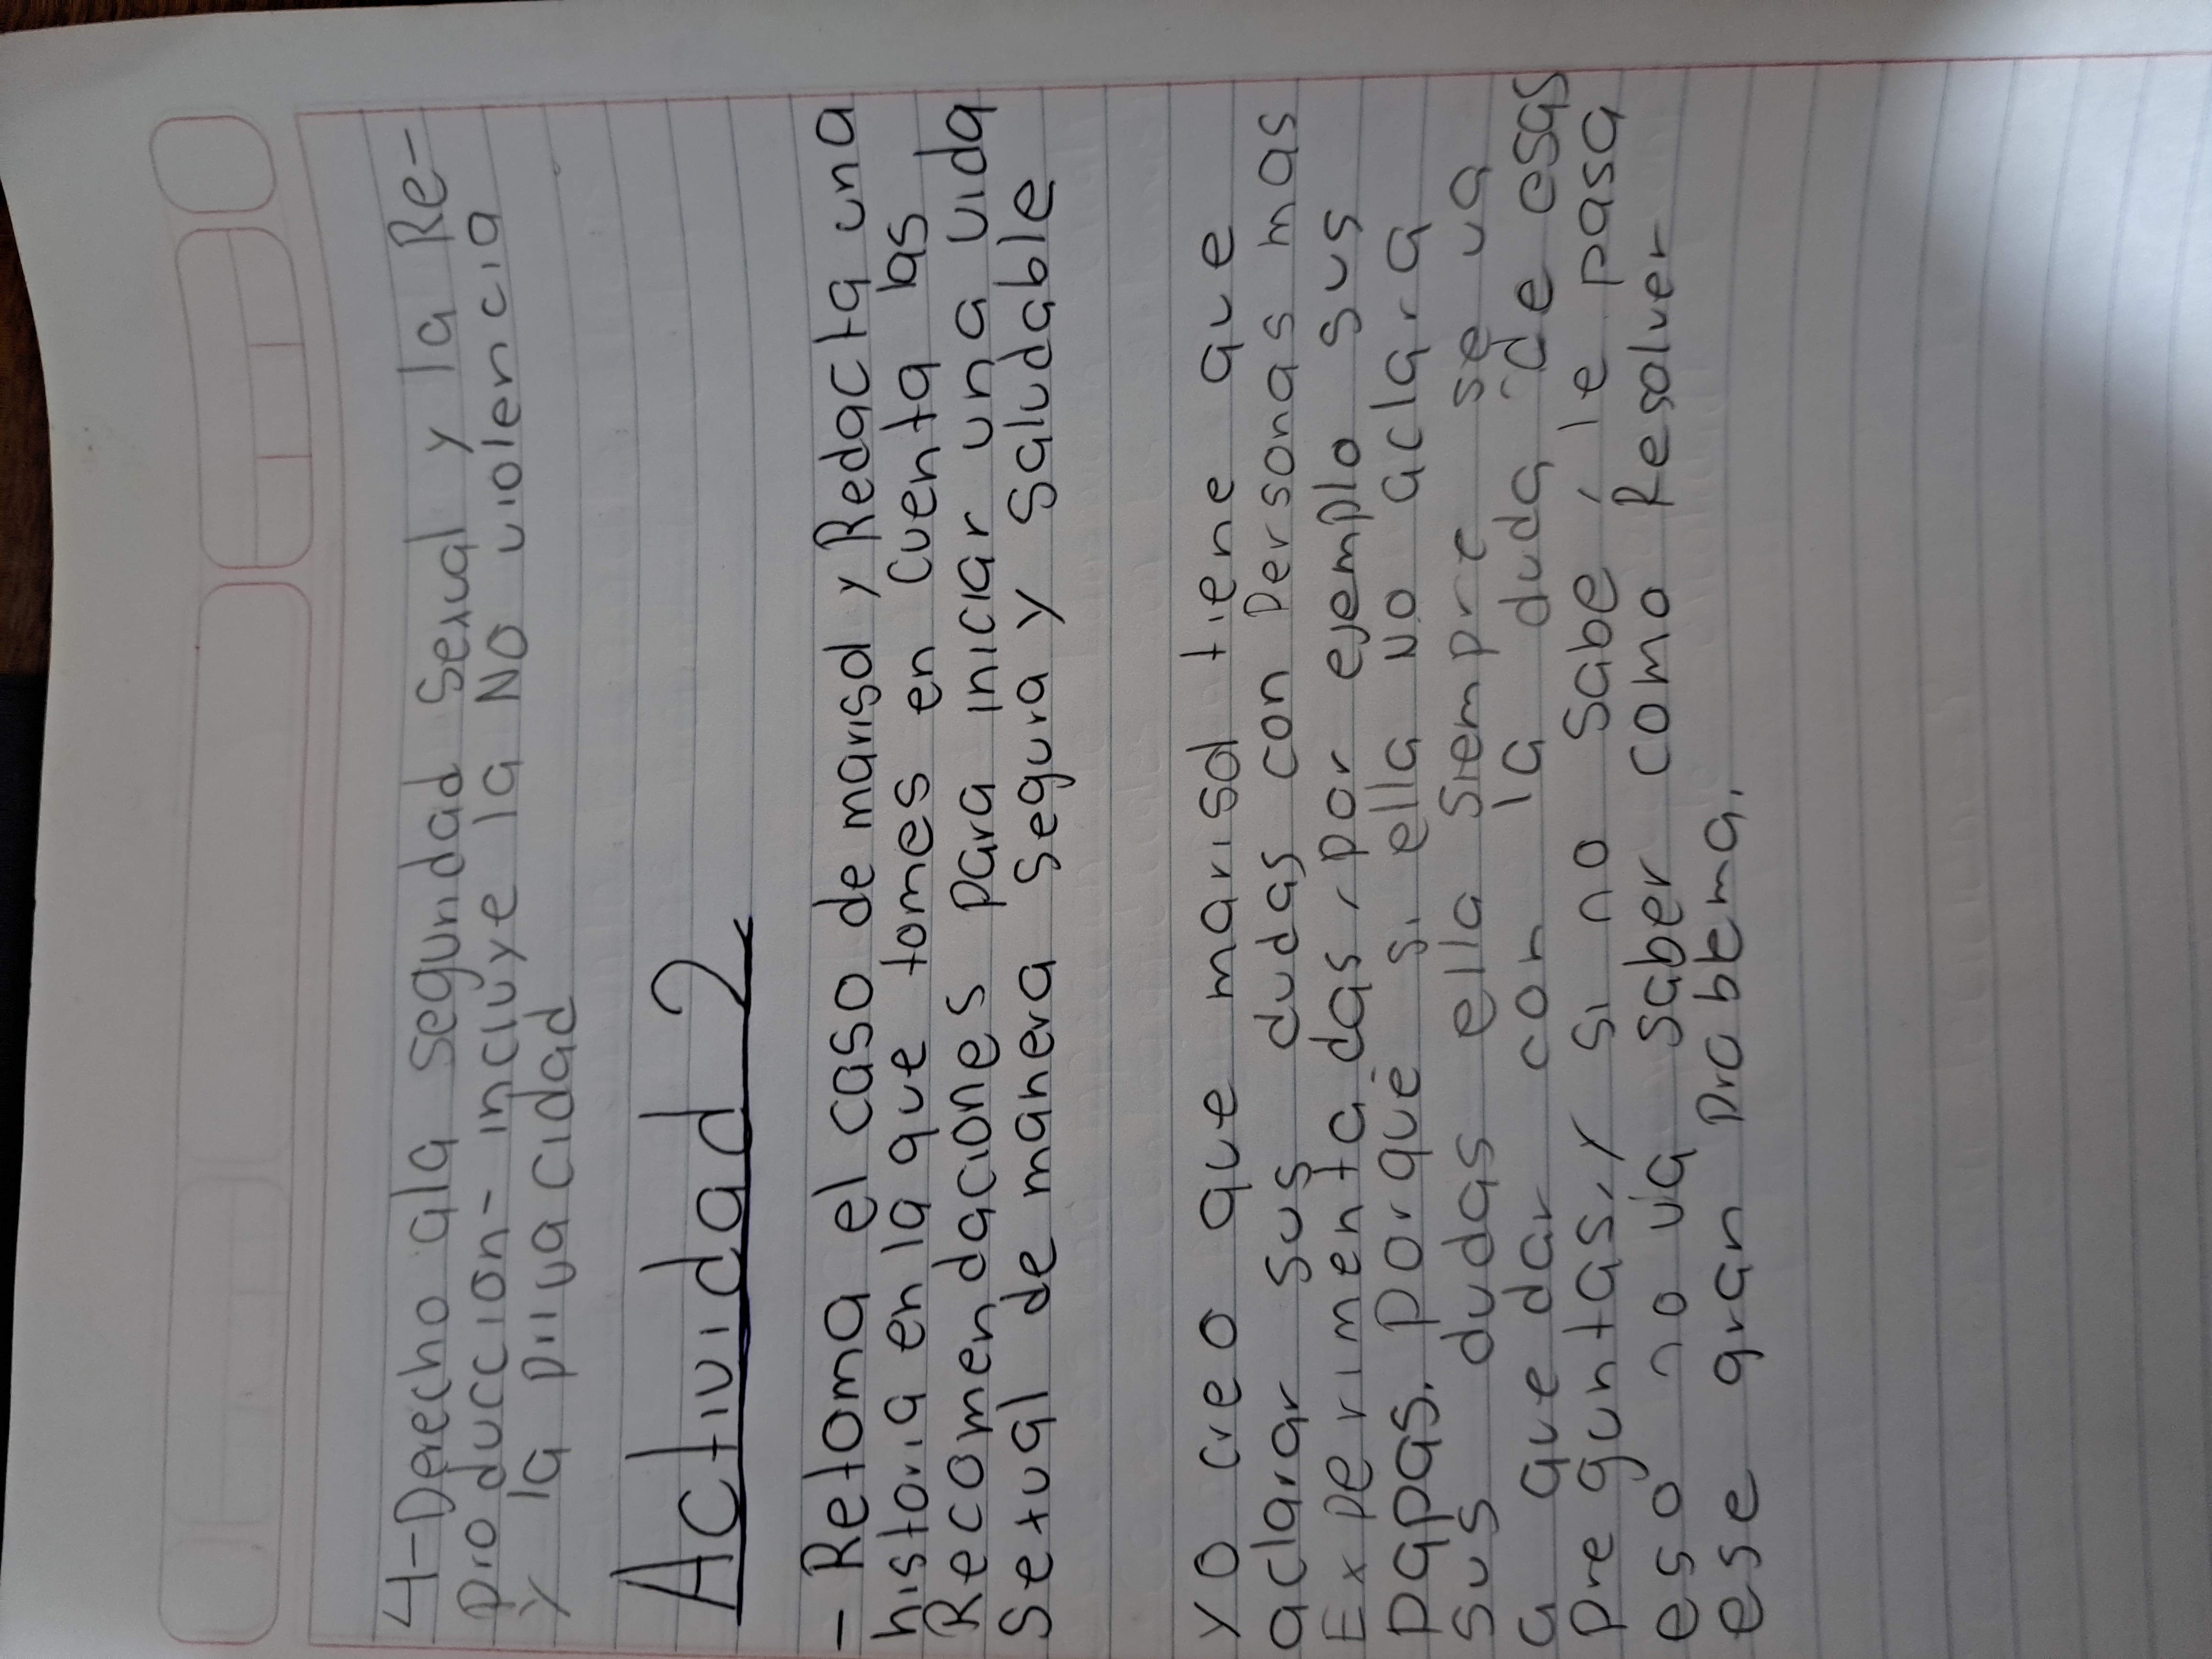 4-Derecho ala segundad sexual y la Re-
producción- incluye la NO violencia
y la privacidad
Actividad 2
- Retoma el caso de marisol y Redacta una
historia en la que tomes en cuenta las
Recomendaciones para iniciar una vida
Sexual de manera segura y Saludable
yo creo que marisol tiene que
aclarar sus dudas con Personas mas
Experimentadas, por ejemplo sus
papas. Porque si ella NO aclara
sus dudas ella Siempre se va
a que dar con la duda de esas
preguntas, y si no Sabe, le pasa
eso no va saber como Resolver
ese gran Probbema.